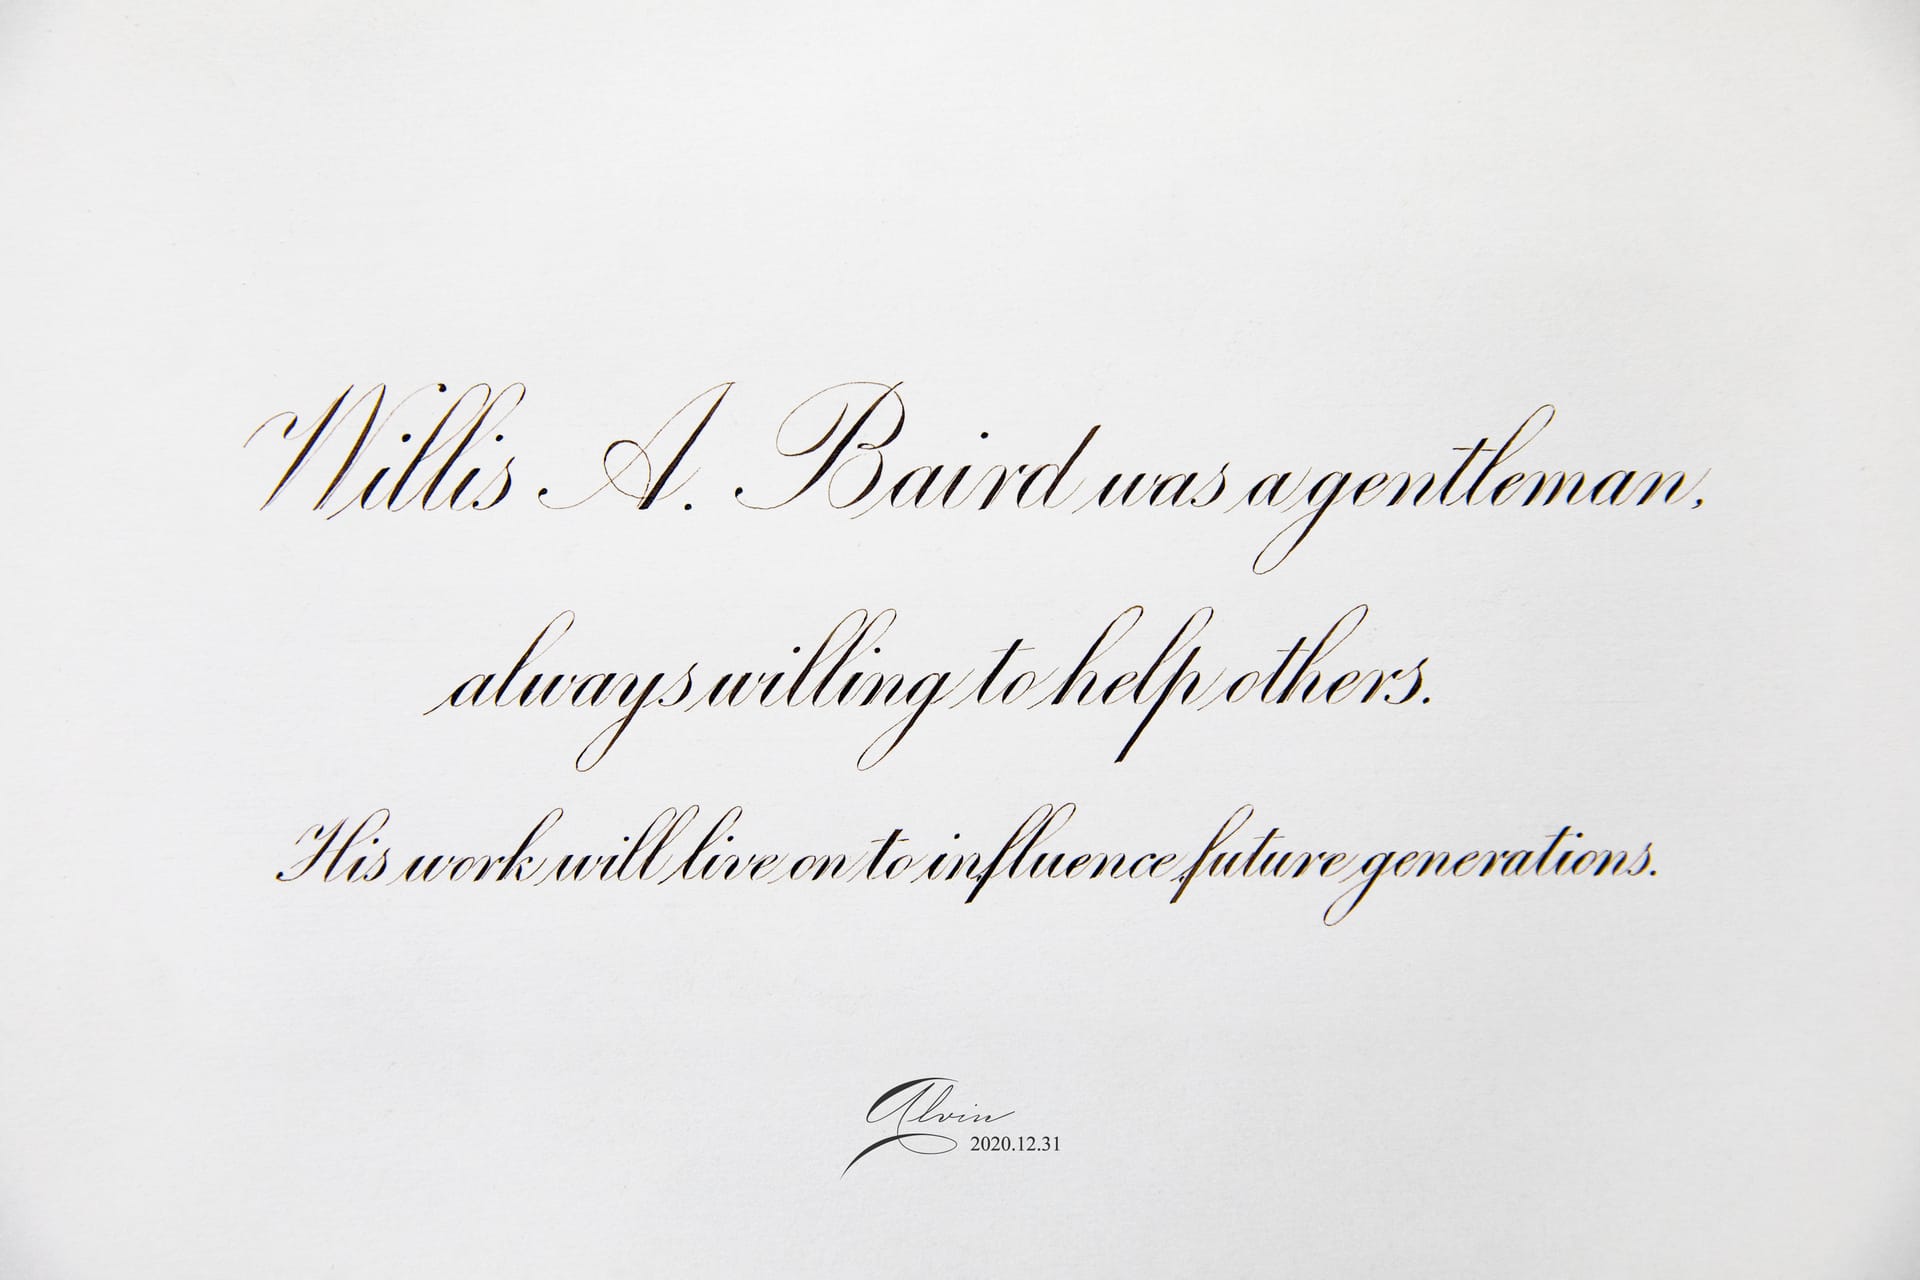 Willis A. Baird was a gentleman,
always willing to help others.
His work will live on to influence future generations.
Alvin
2020.12.31